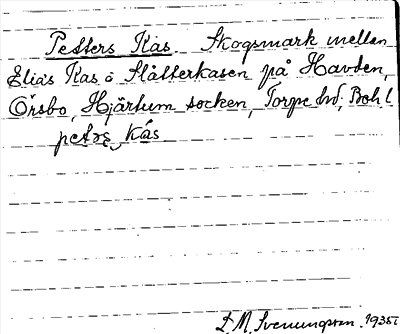 Petters Kas. Skogsmark mellan
Elias Kas o Slåtterkasen på Havden,
Örsbo, Hjärtum socken, Torpe hd, Boh l
petʒ kås
D. M. Svenungsson. 1935.